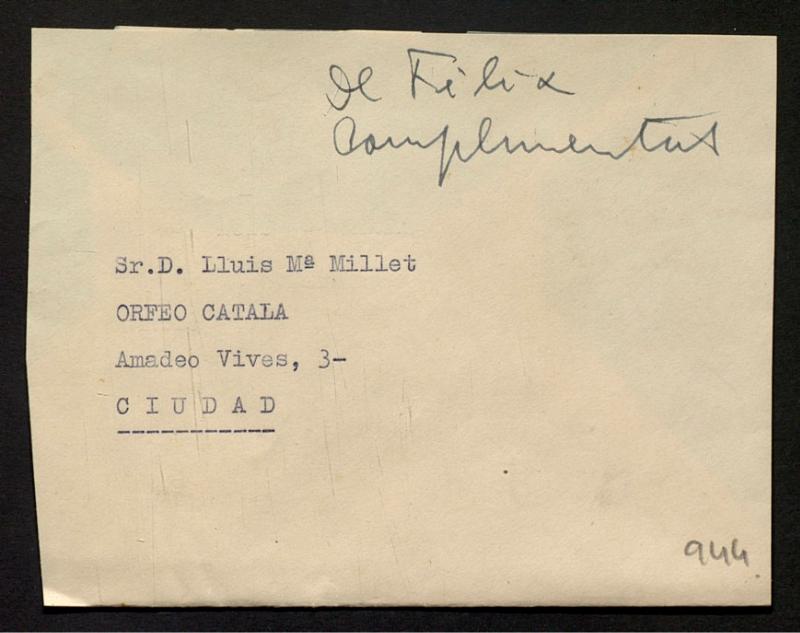 De Fèlix
Complimentat
Sr.D. Lluis Mª Millet
ORFEO CATALA
Amadeo Vives, 3-
C I U D A D
944.